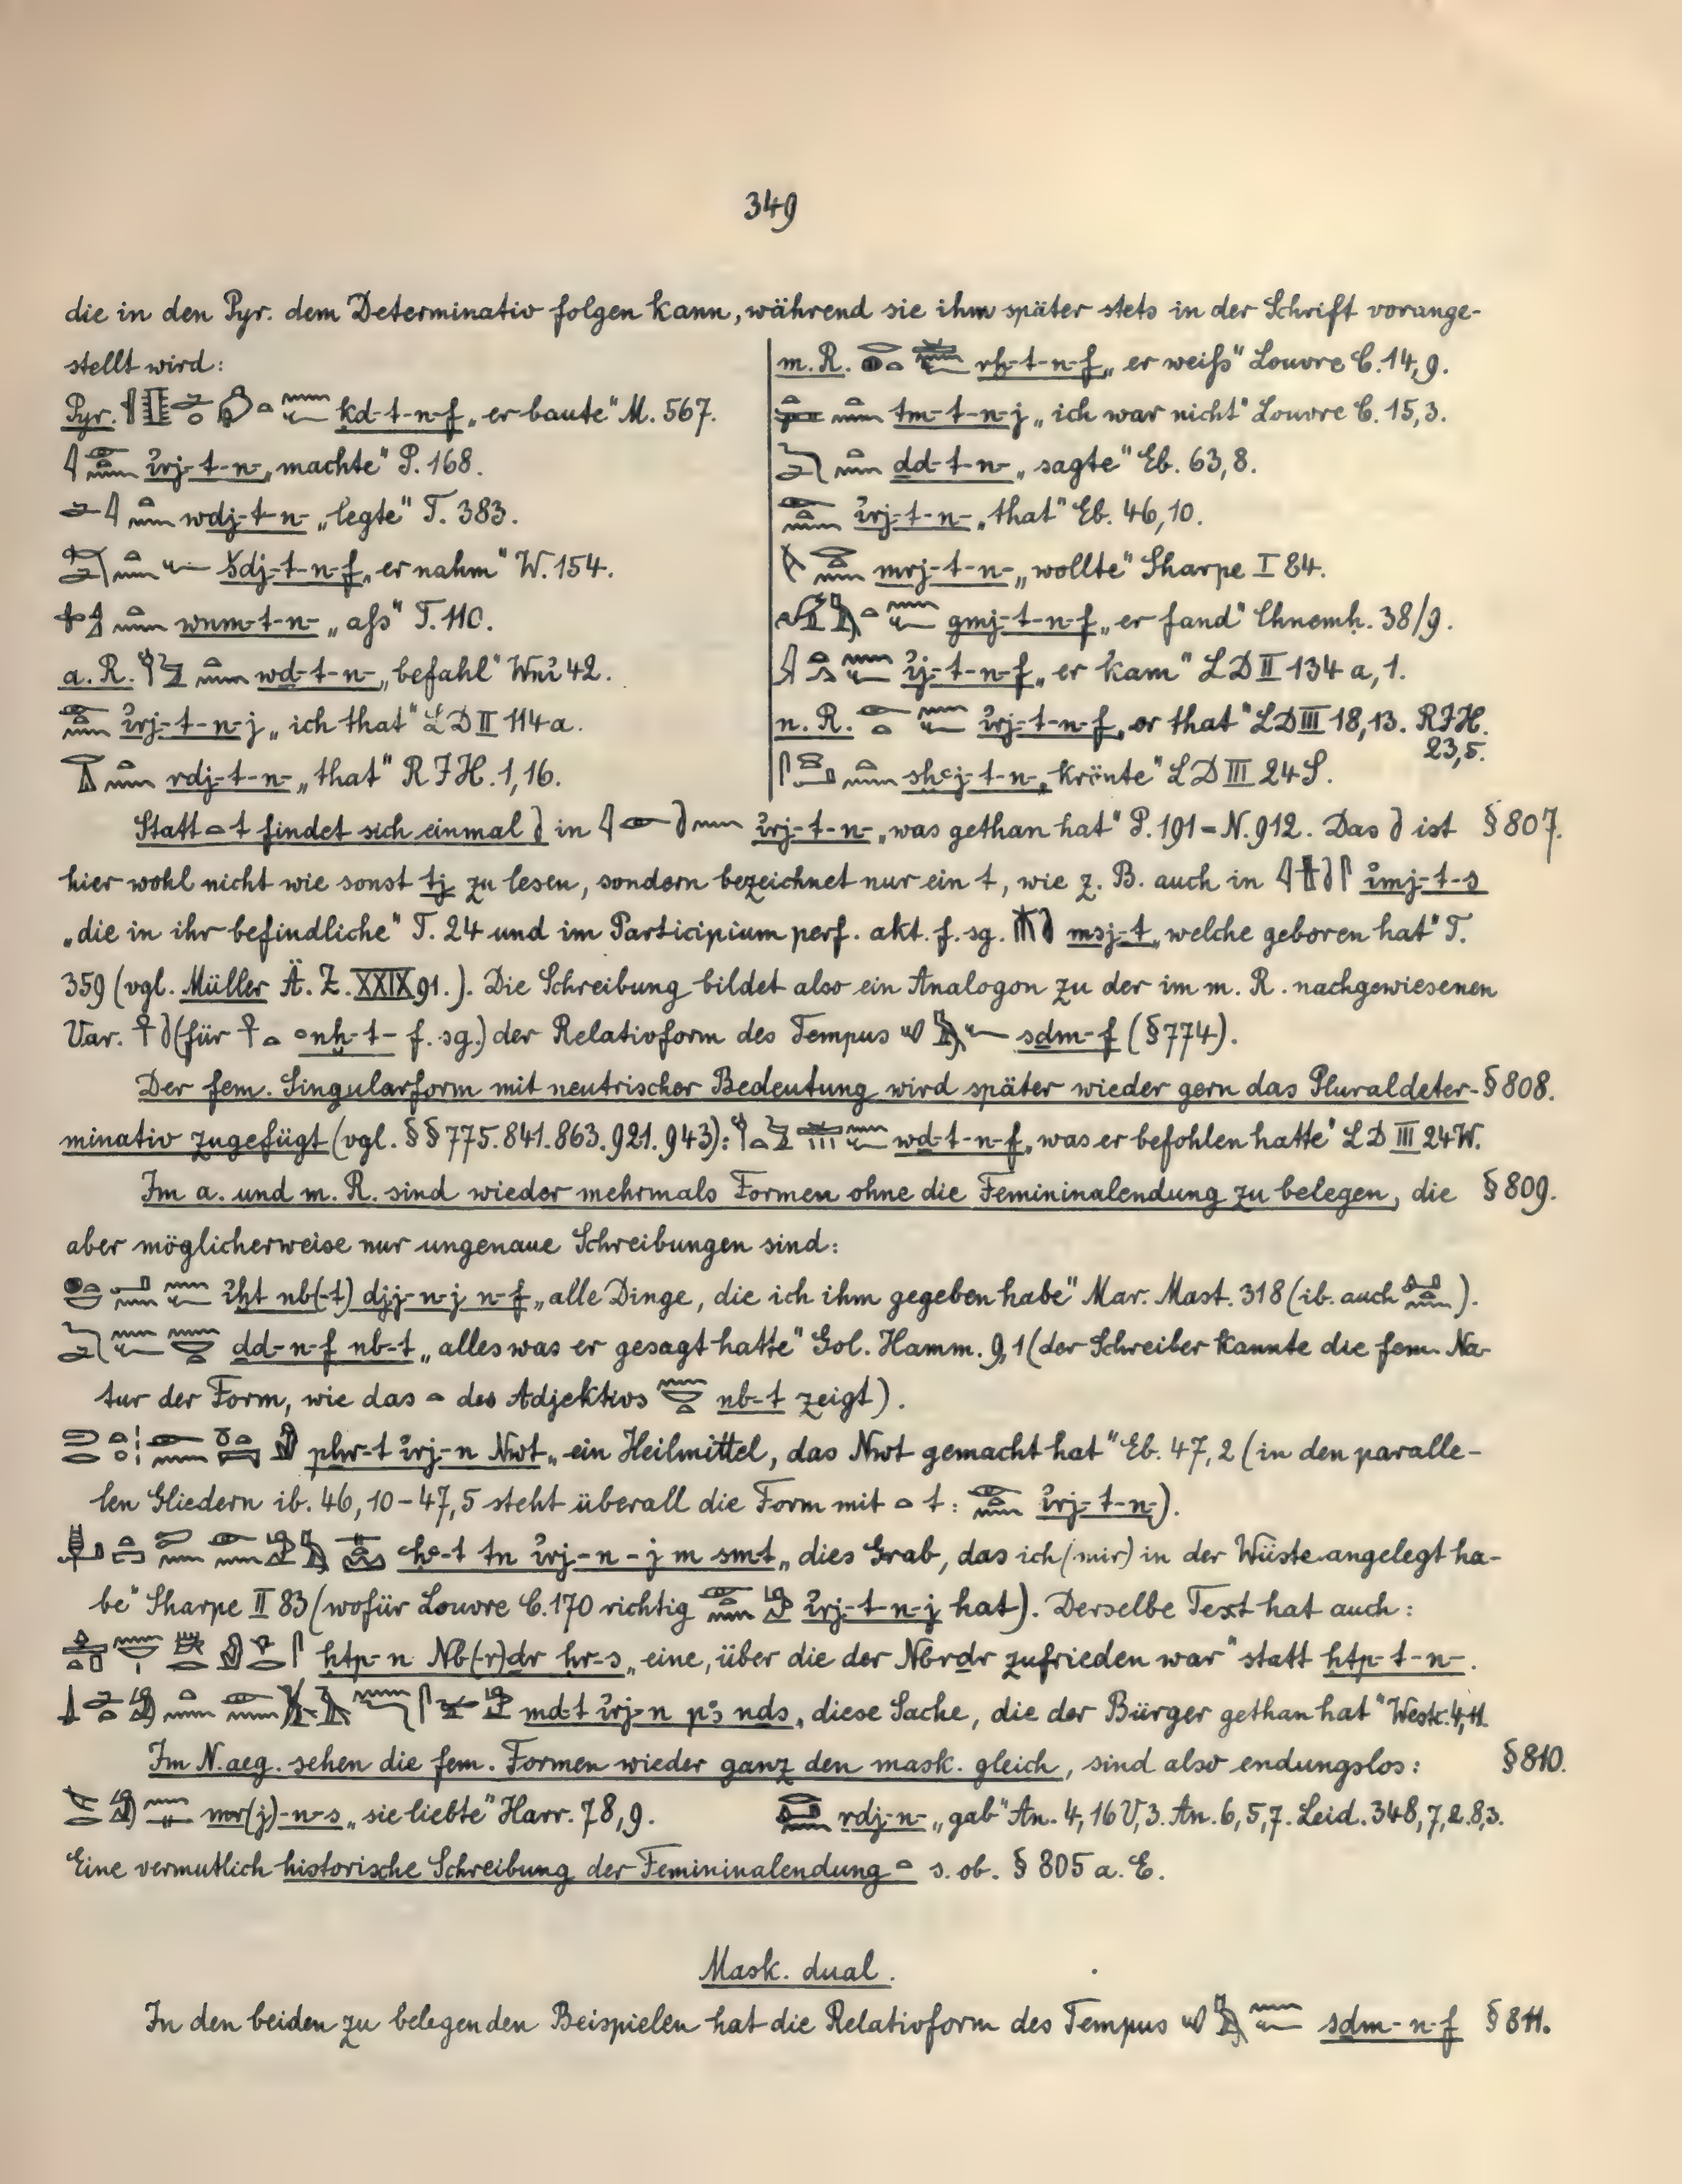 349
die in den Pyr. dem Determinativ folgen kann, während sie ihm später stets in der Schrift vorange-
stellt wird:
Pyr. ḳd-t-n-f „er baute" M. 567.
ỉrj-t-n- „machte" P. 168.
wdj-t-n- „legte" T. 383.
šdj-t-n-f „er nahm" W. 154.
wnm-t-n- „aſs" T. 110.
a. R. wḏ-t-n- „befahl" Wnỉ 42.
ỉrj-t-n-j „ich that" LD II 114a.
rdj-t-n- „that" RJH. 1,16.
m. R. rḫ-t-n-f „er weiſs" Louvre C. 14,9.
tm-t-n-j „ich war nicht" Louvre C. 15,3.
ḏd-t-n- „sagte" Eb. 63,8.
ỉrj-t-n- „that" Eb. 46,10.
mrj-t-n- „wollte" Sharpe I 84.
gmj-t-n-f „er fand" Chnemḥ. 38/9.
ỉj-t-n-f „er kam" LD II 134 a, 1.
n. R. ỉrj-t-n-f „er that" LD III 18,13. RJH.
23,5.
sḫꜥj-t-n- „krönte" LD III 24S.
Statt t findet sich einmal in ỉrj-t-n- „was gethan hat" P. 191 = N. 912. Das ist § 807.
hier wohl nicht wie sonst tj zu lesen, sondern bezeichnet nur ein t, wie z. B. auch in ỉmj-t-s
„die in ihr befindliche" T. 24 und im Participium perf. akt. f. sg. msj-t „welche geboren hat" T.
359 (vgl. Müller Ä. Z. XXIX 91.). Die Schreibung bildet also ein Analogon zu der im m. R. nachgewiesenen
Var. (für ꜥnḫ-t- f. sg.) der Relativform des Tempus sḏm-f (§ 774).
Der fem. Singularform mit neutrischer Bedeutung wird später wieder gern das Pluraldeter- § 808.
minativ zugefügt (vgl. §§ 775. 841. 863. 921. 943): wḏ-t-n-f „was er befohlen hatte" LD III 24W.
Im a. und m. R. sind wieder mehrmals Formen ohne die Femininalendung zu belegen, die § 809.
aber möglicherweise nur ungenaue Schreibungen sind:
ỉḫt nb(-t) djj-n-j n-f „alle Dinge, die ich ihm gegeben habe" Mar. Mast. 318 (ib. auch ).
ḏd-n-f nb-t „alles was er gesagt hatte" Gol. Hamm. 9,1 (der Schreiber kannte die fem. Na-
tur der Form, wie das des Adjektivs nb-t zeigt).
pḫr-t ỉrj-n Nwt „ein Heilmittel, das Nwt gemacht hat" Eb. 47,2 (in den paralle-
len Gliedern ib. 46,10-47,5 steht überall die Form mit t: ỉrj-t-n-).
ꜥḥꜥ-t tn ỉrj-n-j m smt „dies Grab, das ich (mir) in der Wüste angelegt ha-
be" Sharpe II 83 (wofür Louvre C. 170 richtig ỉrj-t-n-j hat). Derselbe Text hat auch:
ḥtp-n Nb(-r)ḏr ḥr-s „eine, über die der Nbrḏr zufrieden war" statt ḥtp-t-n-.
mdt ỉrj-n pꜣ nḏs „diese Sache, die der Bürger gethan hat" Westc. 4,11.
Im N.aeg. sehen die fem. Formen wieder ganz den mask. gleich, sind also endungslos: § 810.
mr(j)-n-s „sie liebte" Harr. 78,9. rdj-n- „gab" An. 4,16 V,3. An. 6,5,7. Leid. 348,7,2. 8,3.
Eine vermutlich historische Schreibung der Femininalendung s. ob. § 805 a. E.
Mask. dual.
In den beiden zu belegenden Beispielen hat die Relativform des Tempus sḏm-n-f § 811.